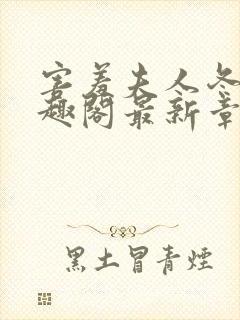 害羞夫人冬
趣阁最新章
黑土冒青煙